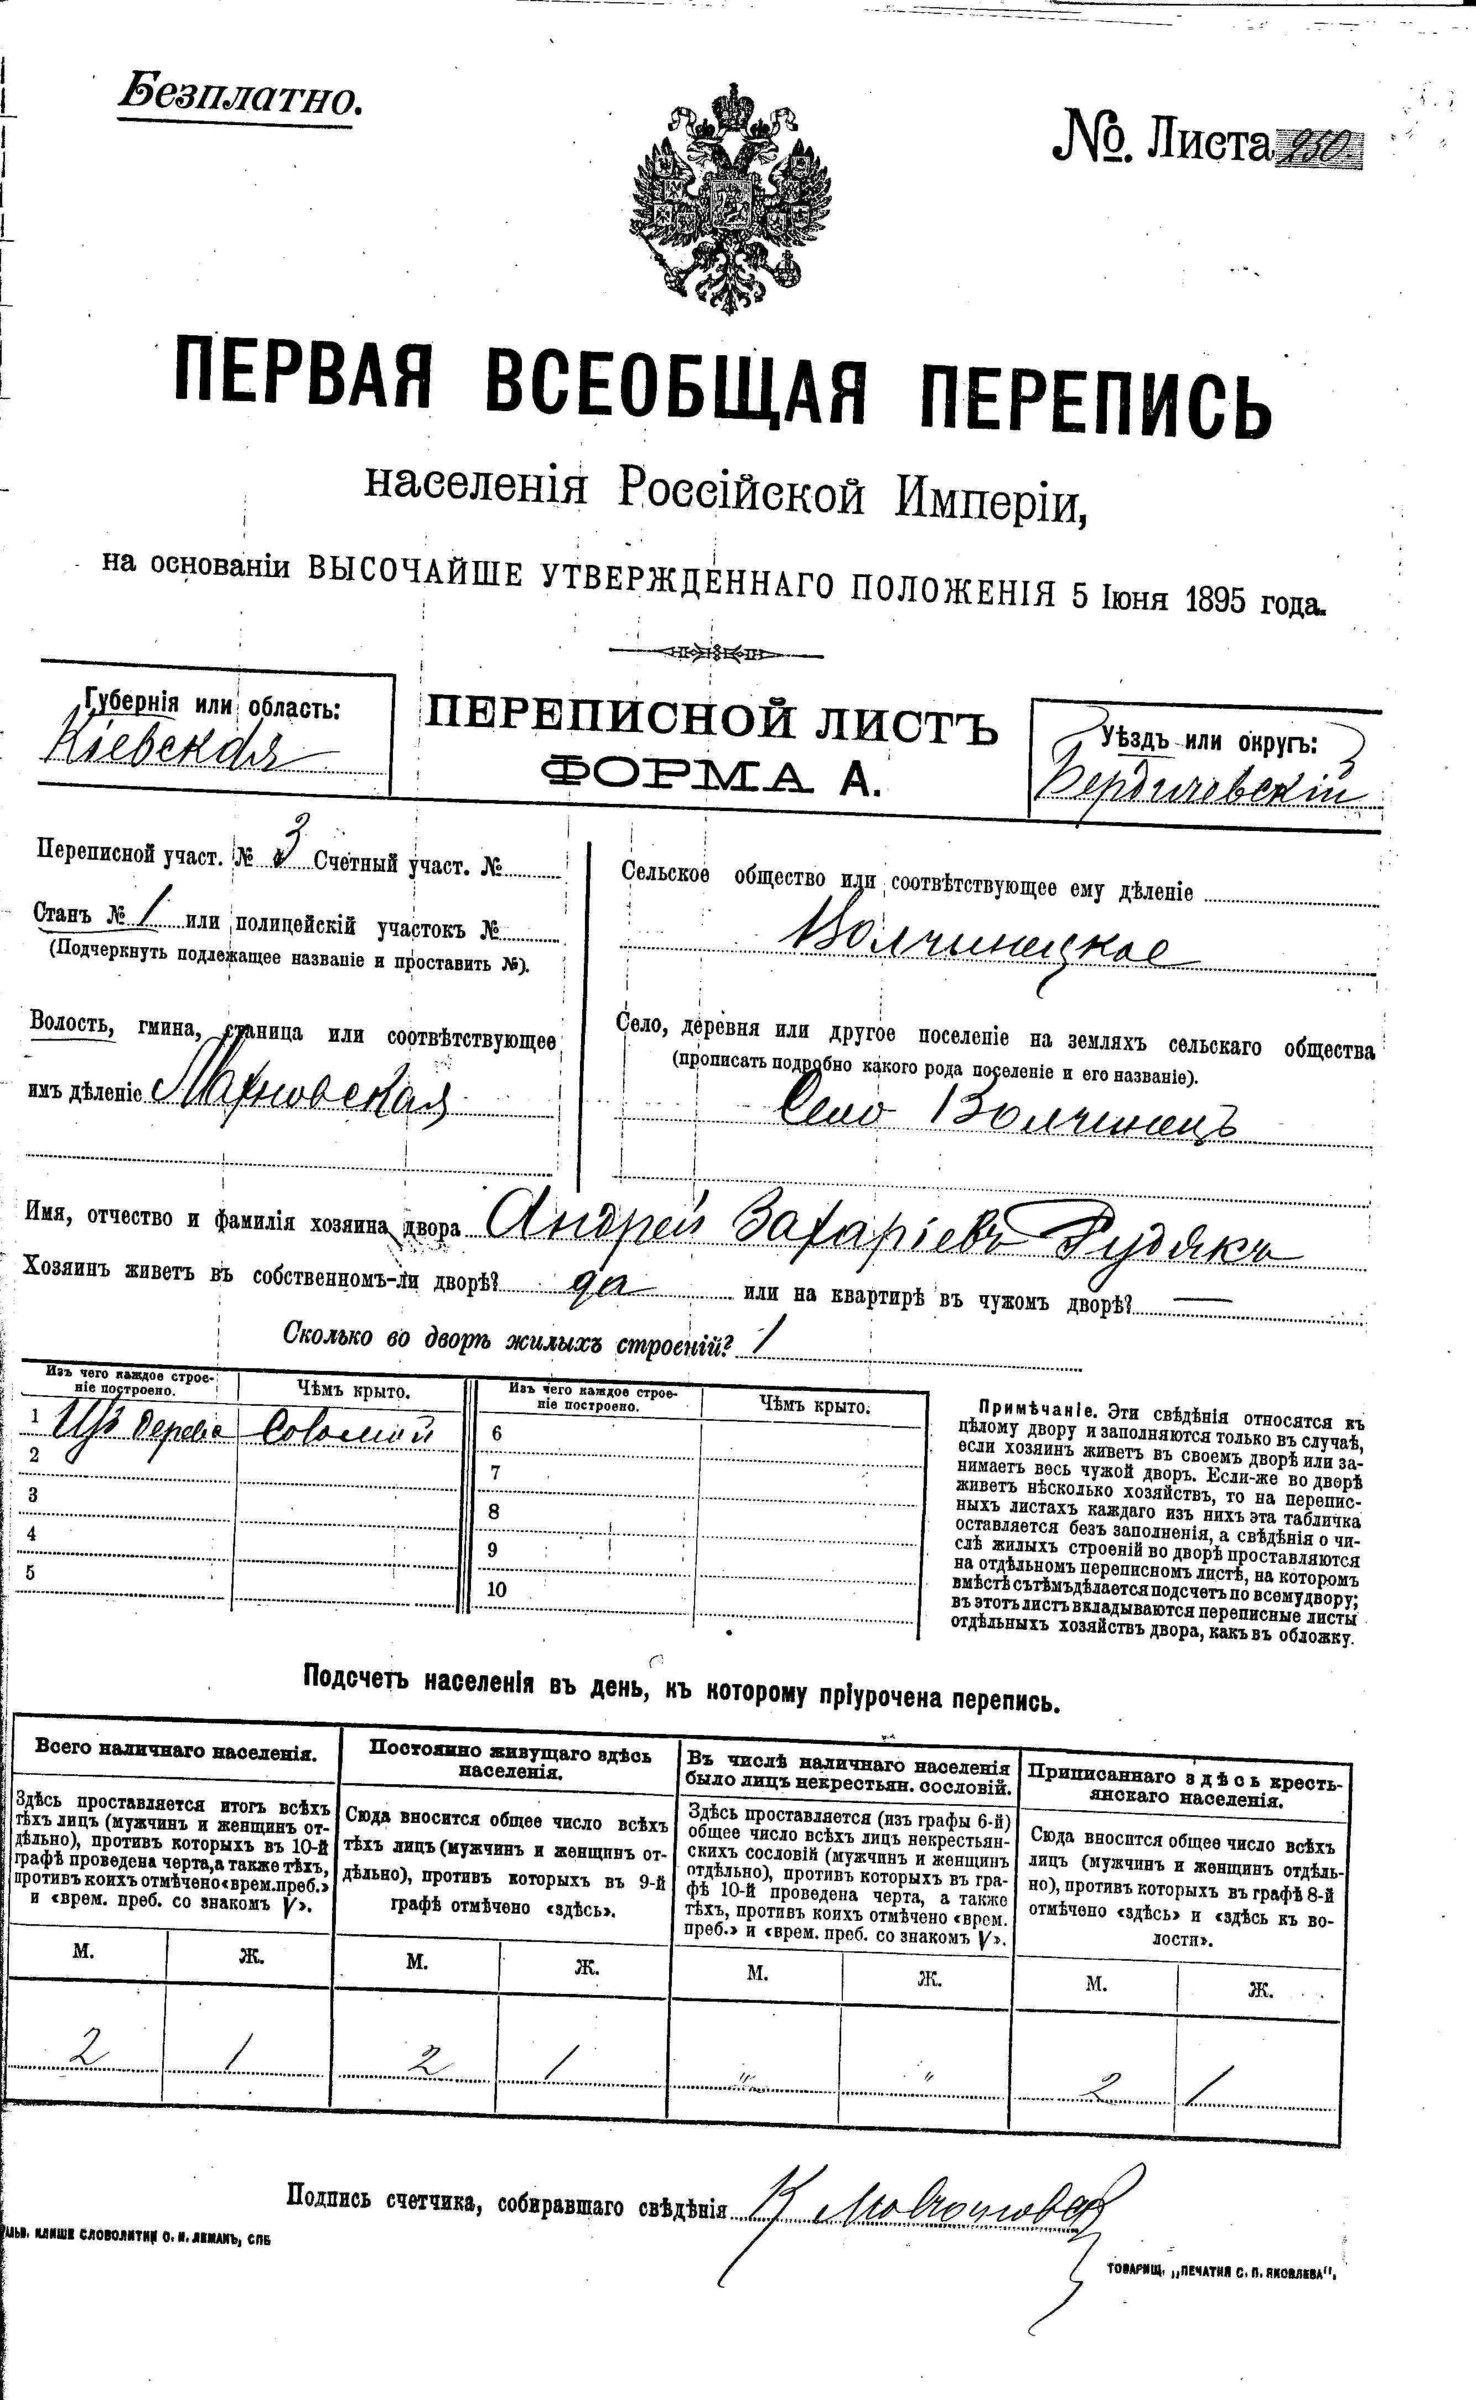 Безплатно.
№. Листа 250.
ПЕРВАЯ ВСЕОБЩАЯ ПЕРЕПИСЬ
населенія Россійской Имперіи,
на основаніи ВЫСОЧАЙШЕ УТВЕРЖДЕННАГО ПОЛОЖЕНІЯ 5 Іюня 1895 года.
Губернія или область:
Кіевская
ПЕРЕПИСНОЙ ЛИСТЪ
ФОРМА А.
Уѣздъ или округъ:
Бердичевскій
Переписной участ. № 3 Счетный участ. №
Станъ № 1 или полицейскій участокъ №
(Подчеркнуть подлежащее названіе и проставить №).
Волость, гмина, станица или соотвѣтствующее
имъ дѣленіе Махновская
Сельское общество или соотвѣтствующее ему дѣленіе
Волчинецкое
Село, деревня или другое поселеніе на земляхъ сельскаго общества
(прописать подробно какого рода поселеніе и его названіе).
Село Волчинецъ
Имя, отчество и фамилія хозяина двора Андрей Захаріевъ Рудякъ
Хозяинъ живетъ въ собственномъ-ли дворѣ? да или на квартирѣ въ чужомъ дворѣ? —
Сколько во дворѣ жилыхъ строеній? 1
Изъ чего каждое строе-
ніе построено.
Чѣмъ крыто.
Изъ чего каждое строе-
ніе построено.
Чѣмъ крыто.
1 Изъ дерева Соломой 6
2 7
3 8
4 9
5 10
Примѣчаніе. Эти свѣдѣнія относятся къ
цѣлому двору и заполняются только въ случаѣ,
если хозяинъ живетъ въ своемъ дворѣ или за-
нимаетъ весь чужой дворъ. Если-же во дворѣ
живетъ нѣсколько хозяйствъ, то на перепис-
ныхъ листахъ каждаго изъ нихъ эта табличка
оставляется безъ заполненія, а свѣдѣнія о чи-
слѣ жилыхъ строеній во дворѣ проставляются
на отдѣльномъ переписномъ листѣ, на которомъ
вмѣстѣ съ тѣмъ дѣлается подсчетъ по всему двору;
въ этотъ листъ вкладываются переписные листы
отдѣльныхъ хозяйствъ двора, какъ въ обложку.
Подсчетъ населенія въ день, къ которому пріурочена перепись.
Всего наличнаго населенія.
Здѣсь проставляется итогъ всѣхъ
тѣхъ лицъ (мужчинъ и женщинъ от-
дѣльно), противъ которыхъ въ 10-й
графѣ проведена черта, а также тѣхъ,
противъ коихъ отмѣчено «врем. преб.»
и «врем. преб. со знакомъ V».
Постоянно живущаго здѣсь
населенія.
Сюда вносится общее число всѣхъ
тѣхъ лицъ (мужчинъ и женщинъ от-
дѣльно), противъ которыхъ въ 9-й
графѣ отмѣчено «здѣсь».
Въ числѣ наличнаго населенія
было лицъ некрестьян. сословій.
Здѣсь проставляется (изъ графы 6-й)
общее число всѣхъ лицъ некрестьян-
скихъ сословій (мужчинъ и женщинъ
отдѣльно), противъ которыхъ въ гра-
фѣ 10-й проведена черта, а также
тѣхъ, противъ коихъ отмѣчено «врем.
преб.» и «врем. преб. со знакомъ V».
Приписаннаго здѣсь кресть-
янскаго населенія.
Сюда вносится общее число всѣхъ
лицъ (мужчинъ и женщинъ отдѣль-
но), противъ которыхъ въ графѣ 8-й
отмѣчено «здѣсь» и «здѣсь къ во-
лости».
М. Ж. М. Ж. М. Ж. М. Ж.
2 1 2 1 " " 2 1
Подпись счетчика, собиравшаго свѣдѣнія К
КЛИШЕ СЛОВОЛИТНИ О. И. ЛЕМАНЪ, СПБ
ТОВАРИЩ. „ПЕЧАТНЯ С. П. ЯКОВЛЕВА".